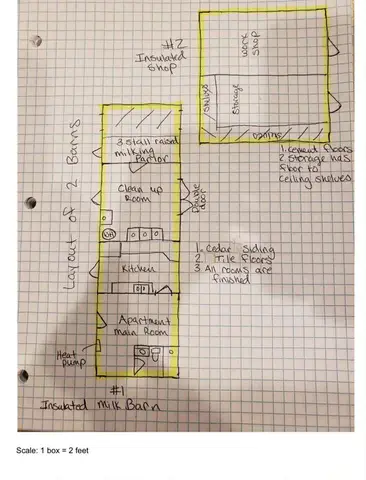 #2
Insulated
Shop
work
shop
Shelves
Storage
1. Cement floors
2 Storage has
floor to
ceiling shelves
Layout of 2 Barns
3 stall raised
milking
Parlor
Clean up
Room
Double
door
WH
1. Cedar Siding
2 Tile floors
3 All rooms are
finished
Kitchen
Apartment
main Room
Heat
pump
#1
Insulated Milk Barn
Scale: 1 box = 2 feet